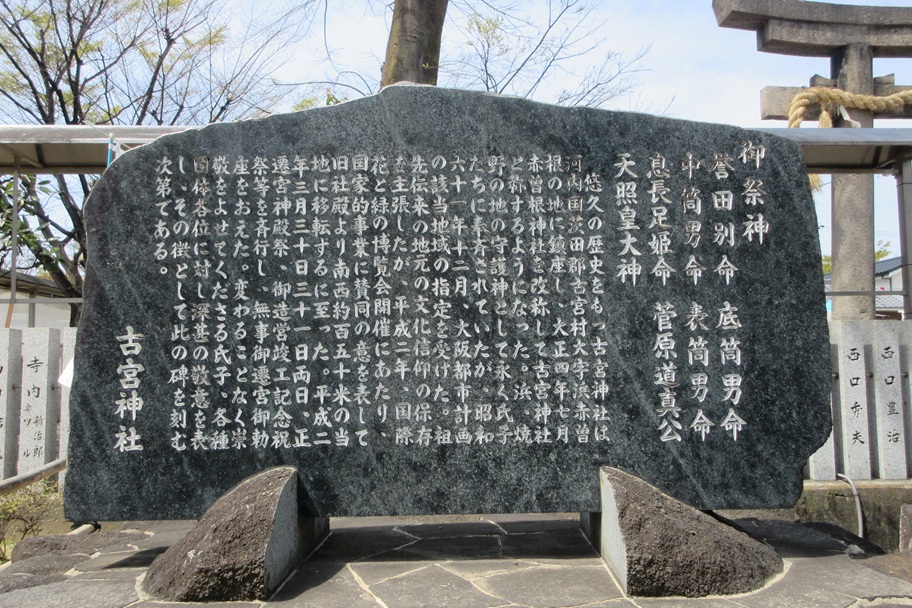 御祭神
誉田別命 底筒男命
中筒男命 表筒男命
息長足姫命 菅原道真公
天照皇大神
悠久の歴史をもつ古宮神社は
河内国茨田郡古宮村大字浜赤曽
根の地に鎮座し大正四年七月
赤曽根神社を改称して古宮神社
と称するようになった。浜、焼
野の地の守護神として永く氏子
たちに奉斉されていたが、昭和
六十一年十二月、大阪都市計画
の該当地域の指定を受け、祖
先伝来地元の文化の保存
を主張したが、平成二年国際
花と緑の博覧会開催にあたり
国家的事業に賛同の意を表して
旧社殿より南西約百五十米の当
地に移転するに至った。平成二
年三月三十日三十一日両日、
遷宮神殿御造営竣工記念祝
祭等を斉行し、無事御遷宮御勅
座をおえた。変わることなく崇
敬をよせてくださる氏子、各種
団体各位に対し深甚の敬意を表
し、その徴として此の碑を刻む
次第である。
古宮神社
西口豊治
西口秀夫
寺内